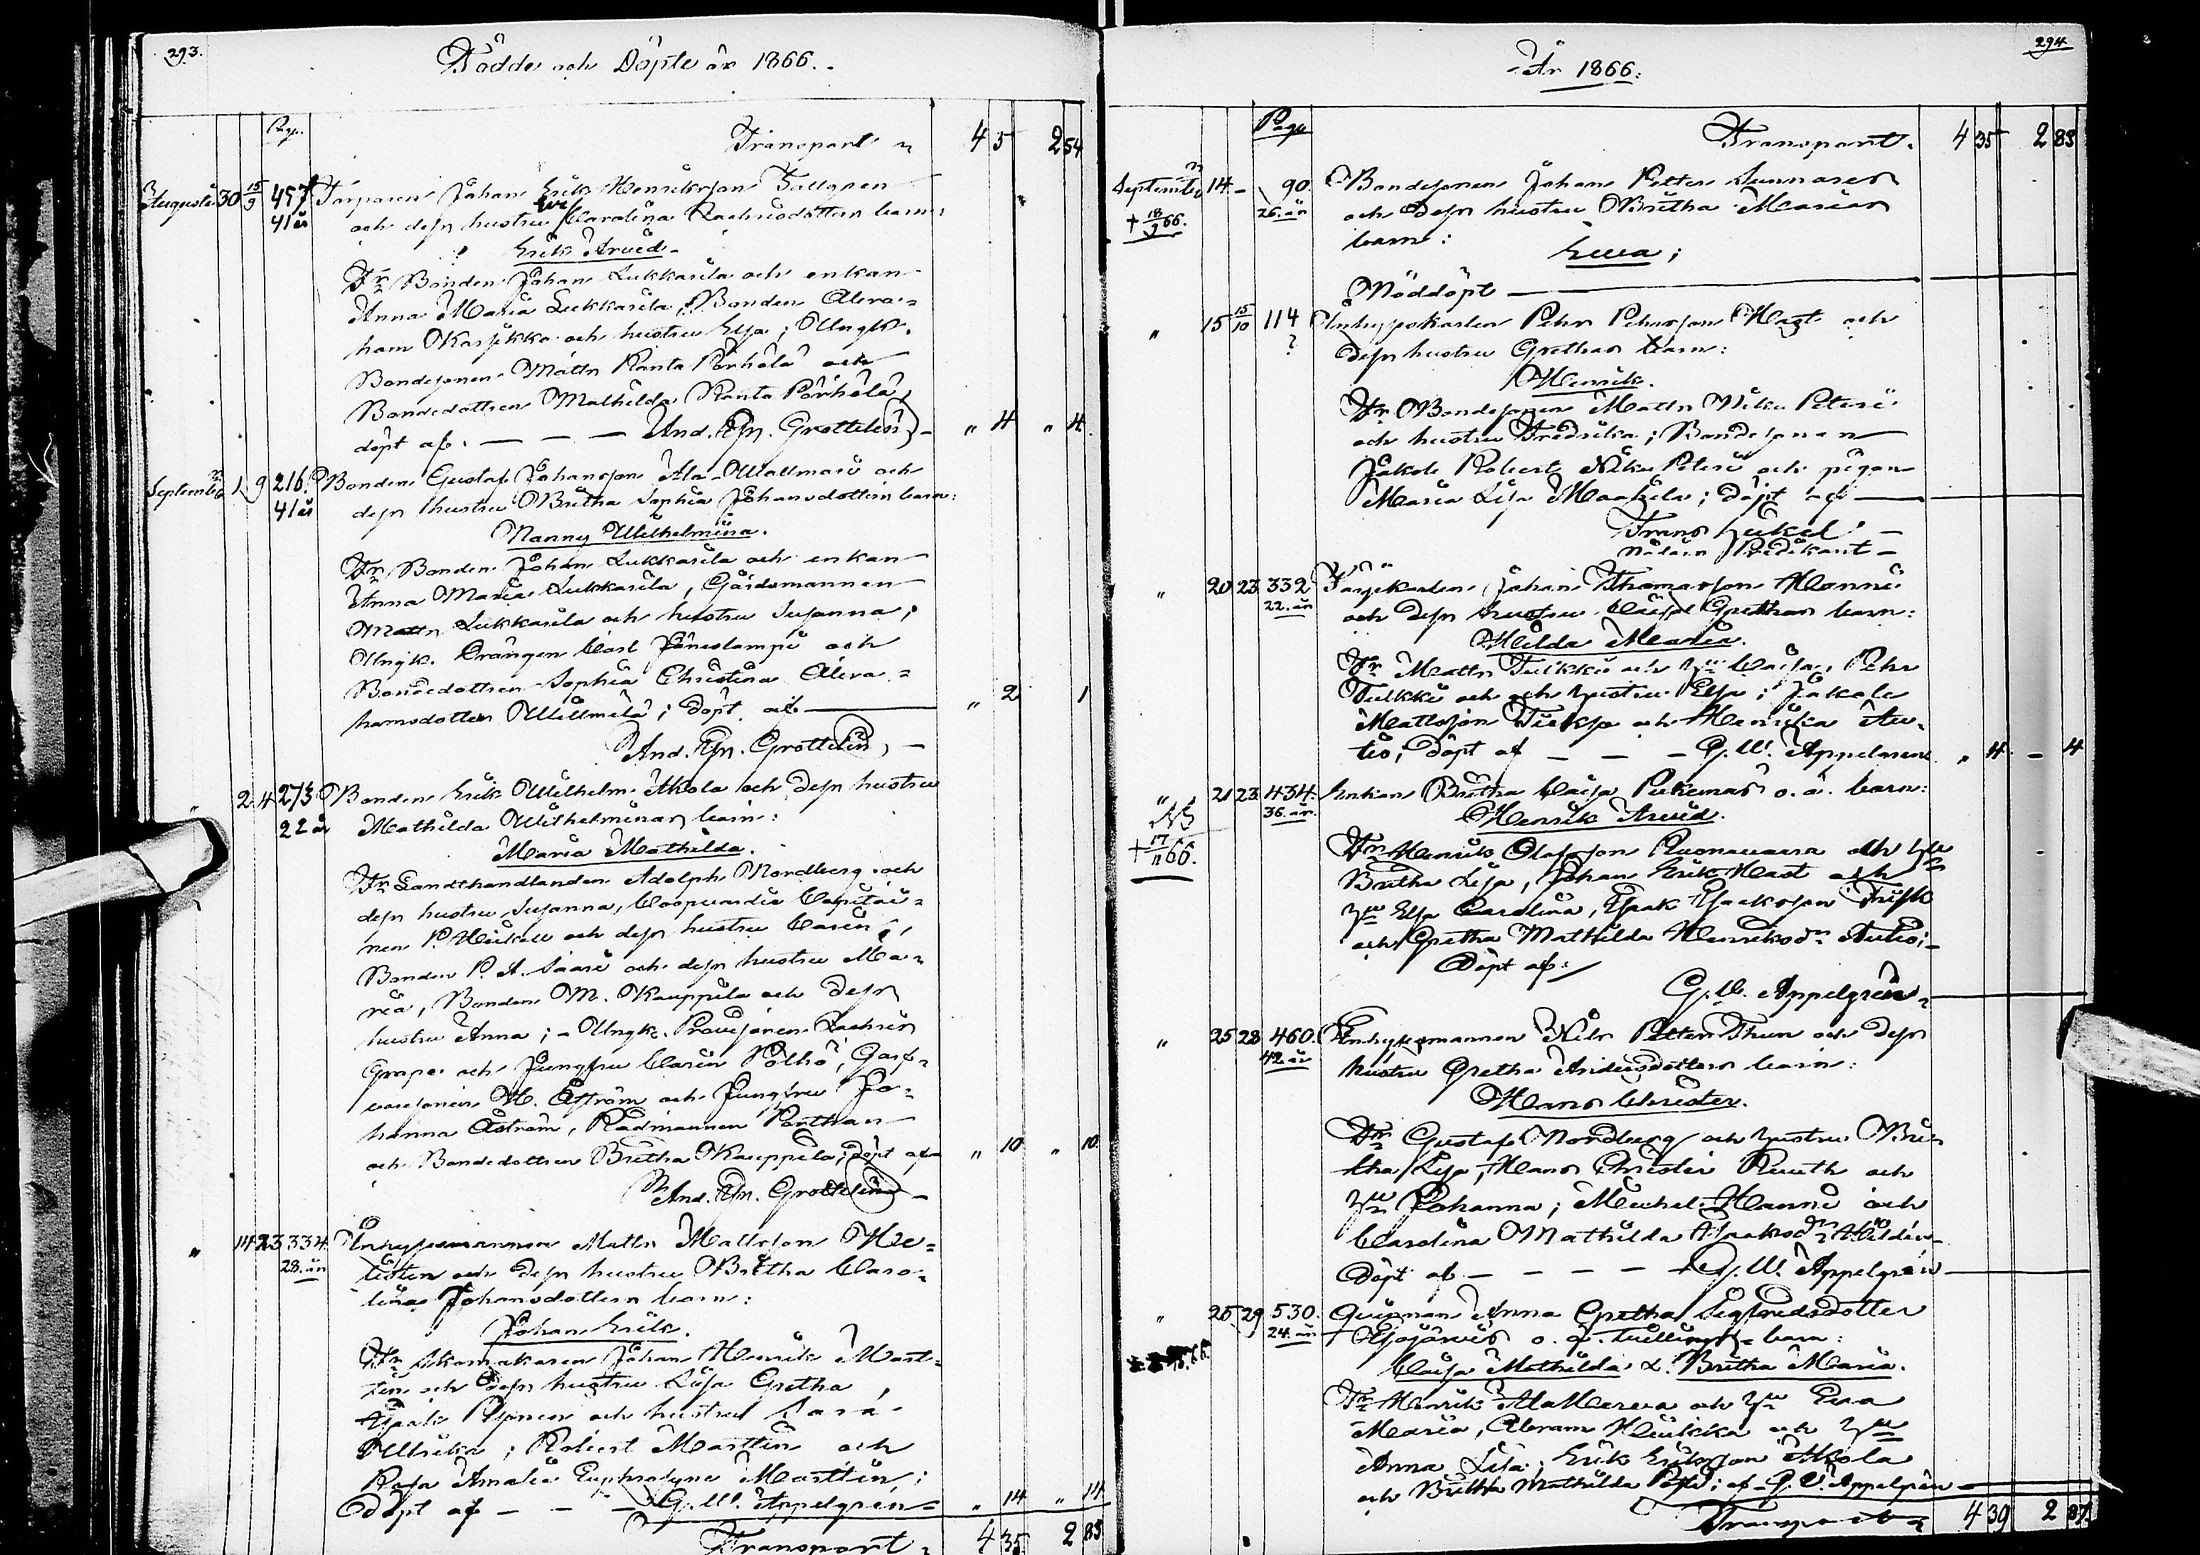 293.
Födde och Döpte år 1866.
Pag.
Transport
4 5 2 54
Augusti 30 15/9 457 Torparen Johan Erik Henriksson Tallgren
41 år och dess hustru Eva Carolina Zachrisdotters barn:
Erik Arvid
Fr. Bonden Johan Lukkarila och enkan
Anna Maria Lukkarila, Bonden Abra=
ham Karjikko och hustru Elsa; Ungk.
Bondesonen Matts Ranta Pörhölä och
Bondedottren Mathilda Ranta Pörhölä,
döpt af. — — — And. Gr. Grottelin
" 4 " 4
September 1 9 216. Bonden Gustaf Johansson Ala-Wallmari och
41 år dess hustru Britha Sophia Johansdotters barn:
Nanny Wilhelmina.
Fr. Bonden Johan Lukkarila och enkan
Anna Maria Lukkarila, Gårdsmannen
Matts Lukkarila och hustru Susanna;
Ungk. Drängen Carl Jäneslampi och
Bondedottren Sophia Christina Abra=
hamsdotter Willmilä; döpt af
" 2 1
And. Gr. Grottelin
" 2 4 273 Bonden Erik Wilhelm Alkola och dess hustru
22 år Mathilda Wilhelminas barn:
Maria Mathilda.
Fr. Landthandlanden Adolph Nordberg och
dess hustru Susanna, Coopvardie Capitai=
nen P. Heikell och dess hustru Carin,
Bonden P. A. Saari och dess hustru Ma=
ria, Bonden M. Kauppila och dess
hustru Anna; Ungk. Provisoren Zachris
Grape och Jungfru Carin Pölhö, Garf=
varesonen H. Åström och Jungfru Jo=
hanna Åström, Rådmannen Porthan
och Bondedottren Britha Kauppila; döpt af
" 10 " 10
And. Gr. Grottelin
" 14 23 334 Inhysesmannen Matts Mattsson
28. år och dess hustru Britha Caro=
linas Johansdotters barn:
Johan Erik.
Fr. Skomakaren Johan Henrik Mart=
tin och dess hustru Lisa Gretha,
Isaak och hustru Sara
Ulrika; Robert Marttin och
Rosa Amalia Euphrosyne Marttin;
Döpt af — — — G. W. Appelgren
" 14 " 11
Transport
4 35 2 83
294
År 1866.
Page
Transport.
4 35 2 83
September 14 — 90. Bondesonen Johan Petter Sunnares
† 18/9 66. 26. år och dess hustru Britha Marias
barn:
Ewa;
Nöddöpt
" 15 15/10 114 Inhyseskarlen Pehr Pehrsson Hast och
? dess hustru Grethas barn:
Henrik.
Fr. Bondesonen Matts Niku Peteri
och hustru Fredrika; Bondesonen
Jakob Robert Niku Peteri och pigan
Maria Lisa Maakela; döpt af
Frans Heikel
Predikant
" 20 23 332 Färjekarlen Johan Thomasson Hannu
22. år och dess hustru Caisa Grethas barn:
Hilda Maria.
Fr. Matts Tulkki och hu Caisa, Pehr
Tulkki och och hustru Elsa; Jakob
Mattsson Tuiksa och Henrika Au=
tio; Döpt af — — — G. W. Appelgren
" 4 — 4
" 21 23 434 Enkan Britha Caisa Pekumas o. ä. barn:
NB 36. år. Henrik Arvid.
† 17/11 66. Fr. Henrik Olofsson Ruonavaara och hu
Britha Lisa, Johan Erik Hast och
hu Elsa Carolina, Isaak Isaksson Frisk
och Gretha Mathilda Henriksdr Autio;
Döpt af:
G. W. Appelgren
" 25 28 460. Inhysesmannen Nils Petter Thun och dess
42 år hustru Gretha Andersdotters barn:
Hans Christer.
Fr. Gustaf Nordberg och hustru Bri=
tha Lisa, Hans Christer Ruuth och
hu Johanna; Mickel Hannu och
Carolina Mathilda Isaksdr
Döpt af — — — — G. W. Appelgren
" 25 29 530. Qvinnan Anna Gretha Sigfredsdotter
24. år o. ä. Tvillings barn:
Caisa Mathilda & Britha Maria.
Fr. Henrik AlaHerva och hu Eva
Maria, Abram Heikka och hu
Anna Lisa, Erik Eriksson Alkola
och Britha Mathilda; af G. W. Appelgren
Transport
4 39 2 87